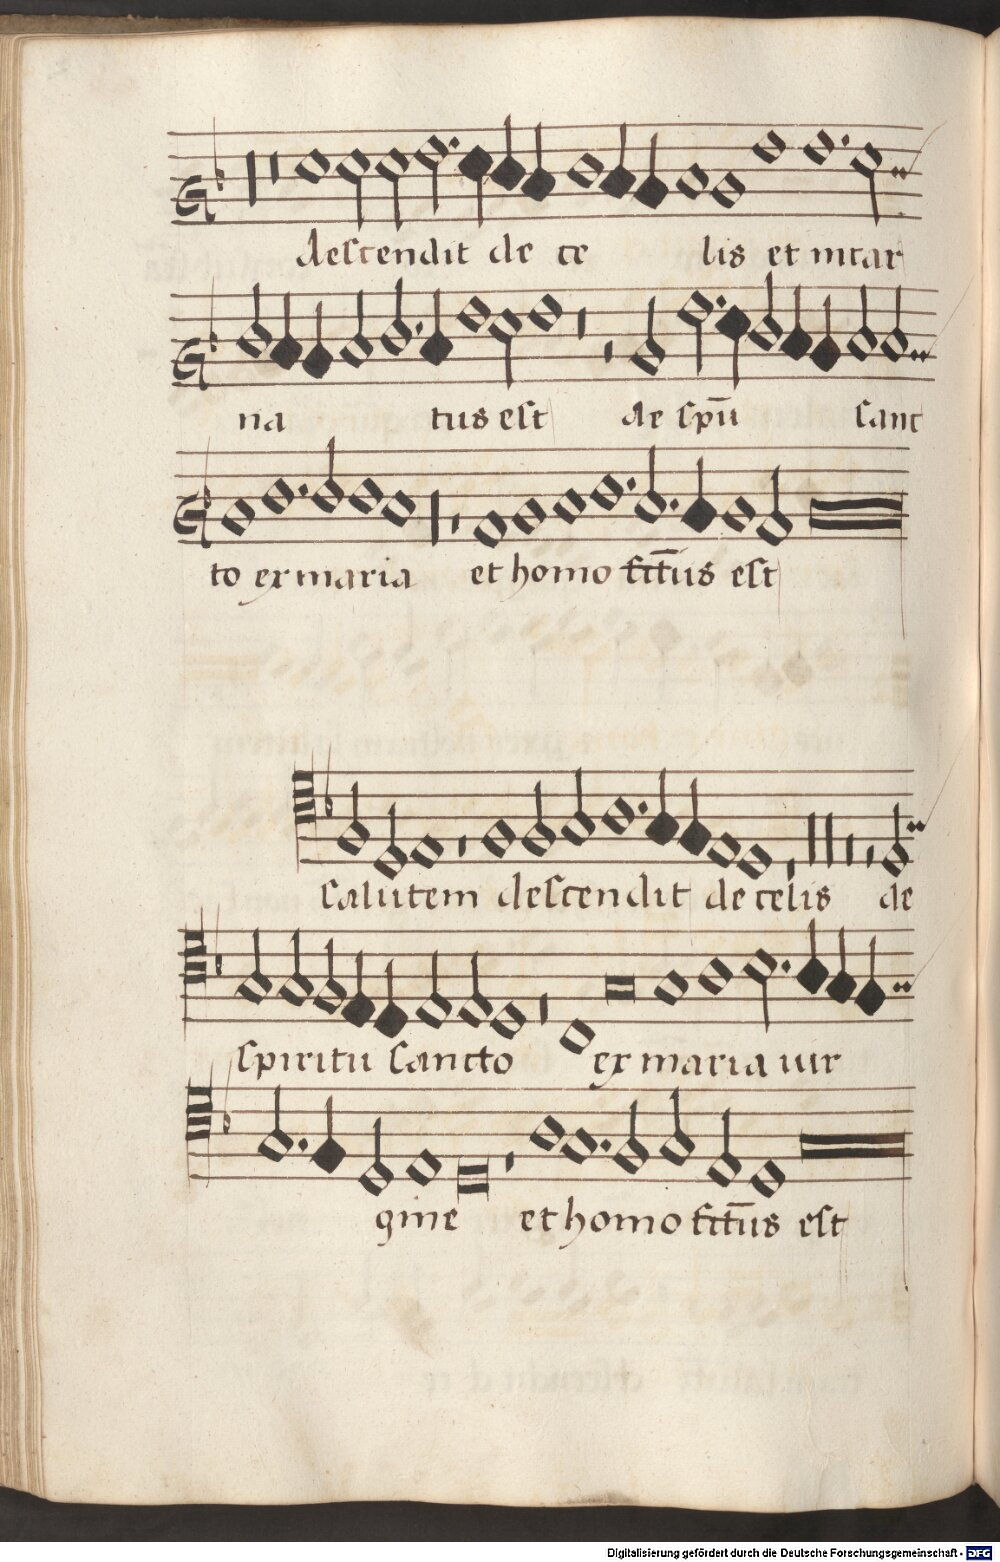 descendit de ce lis et incar
na tus est de spū sanc
to ex maria et homo fctūs est
salutem descendit de celis de
spiritu sancto ex maria uir
gine et homo fctūs est
Digitalisierung gefördert durch die Deutsche Forschungsgemeinschaft - DFG